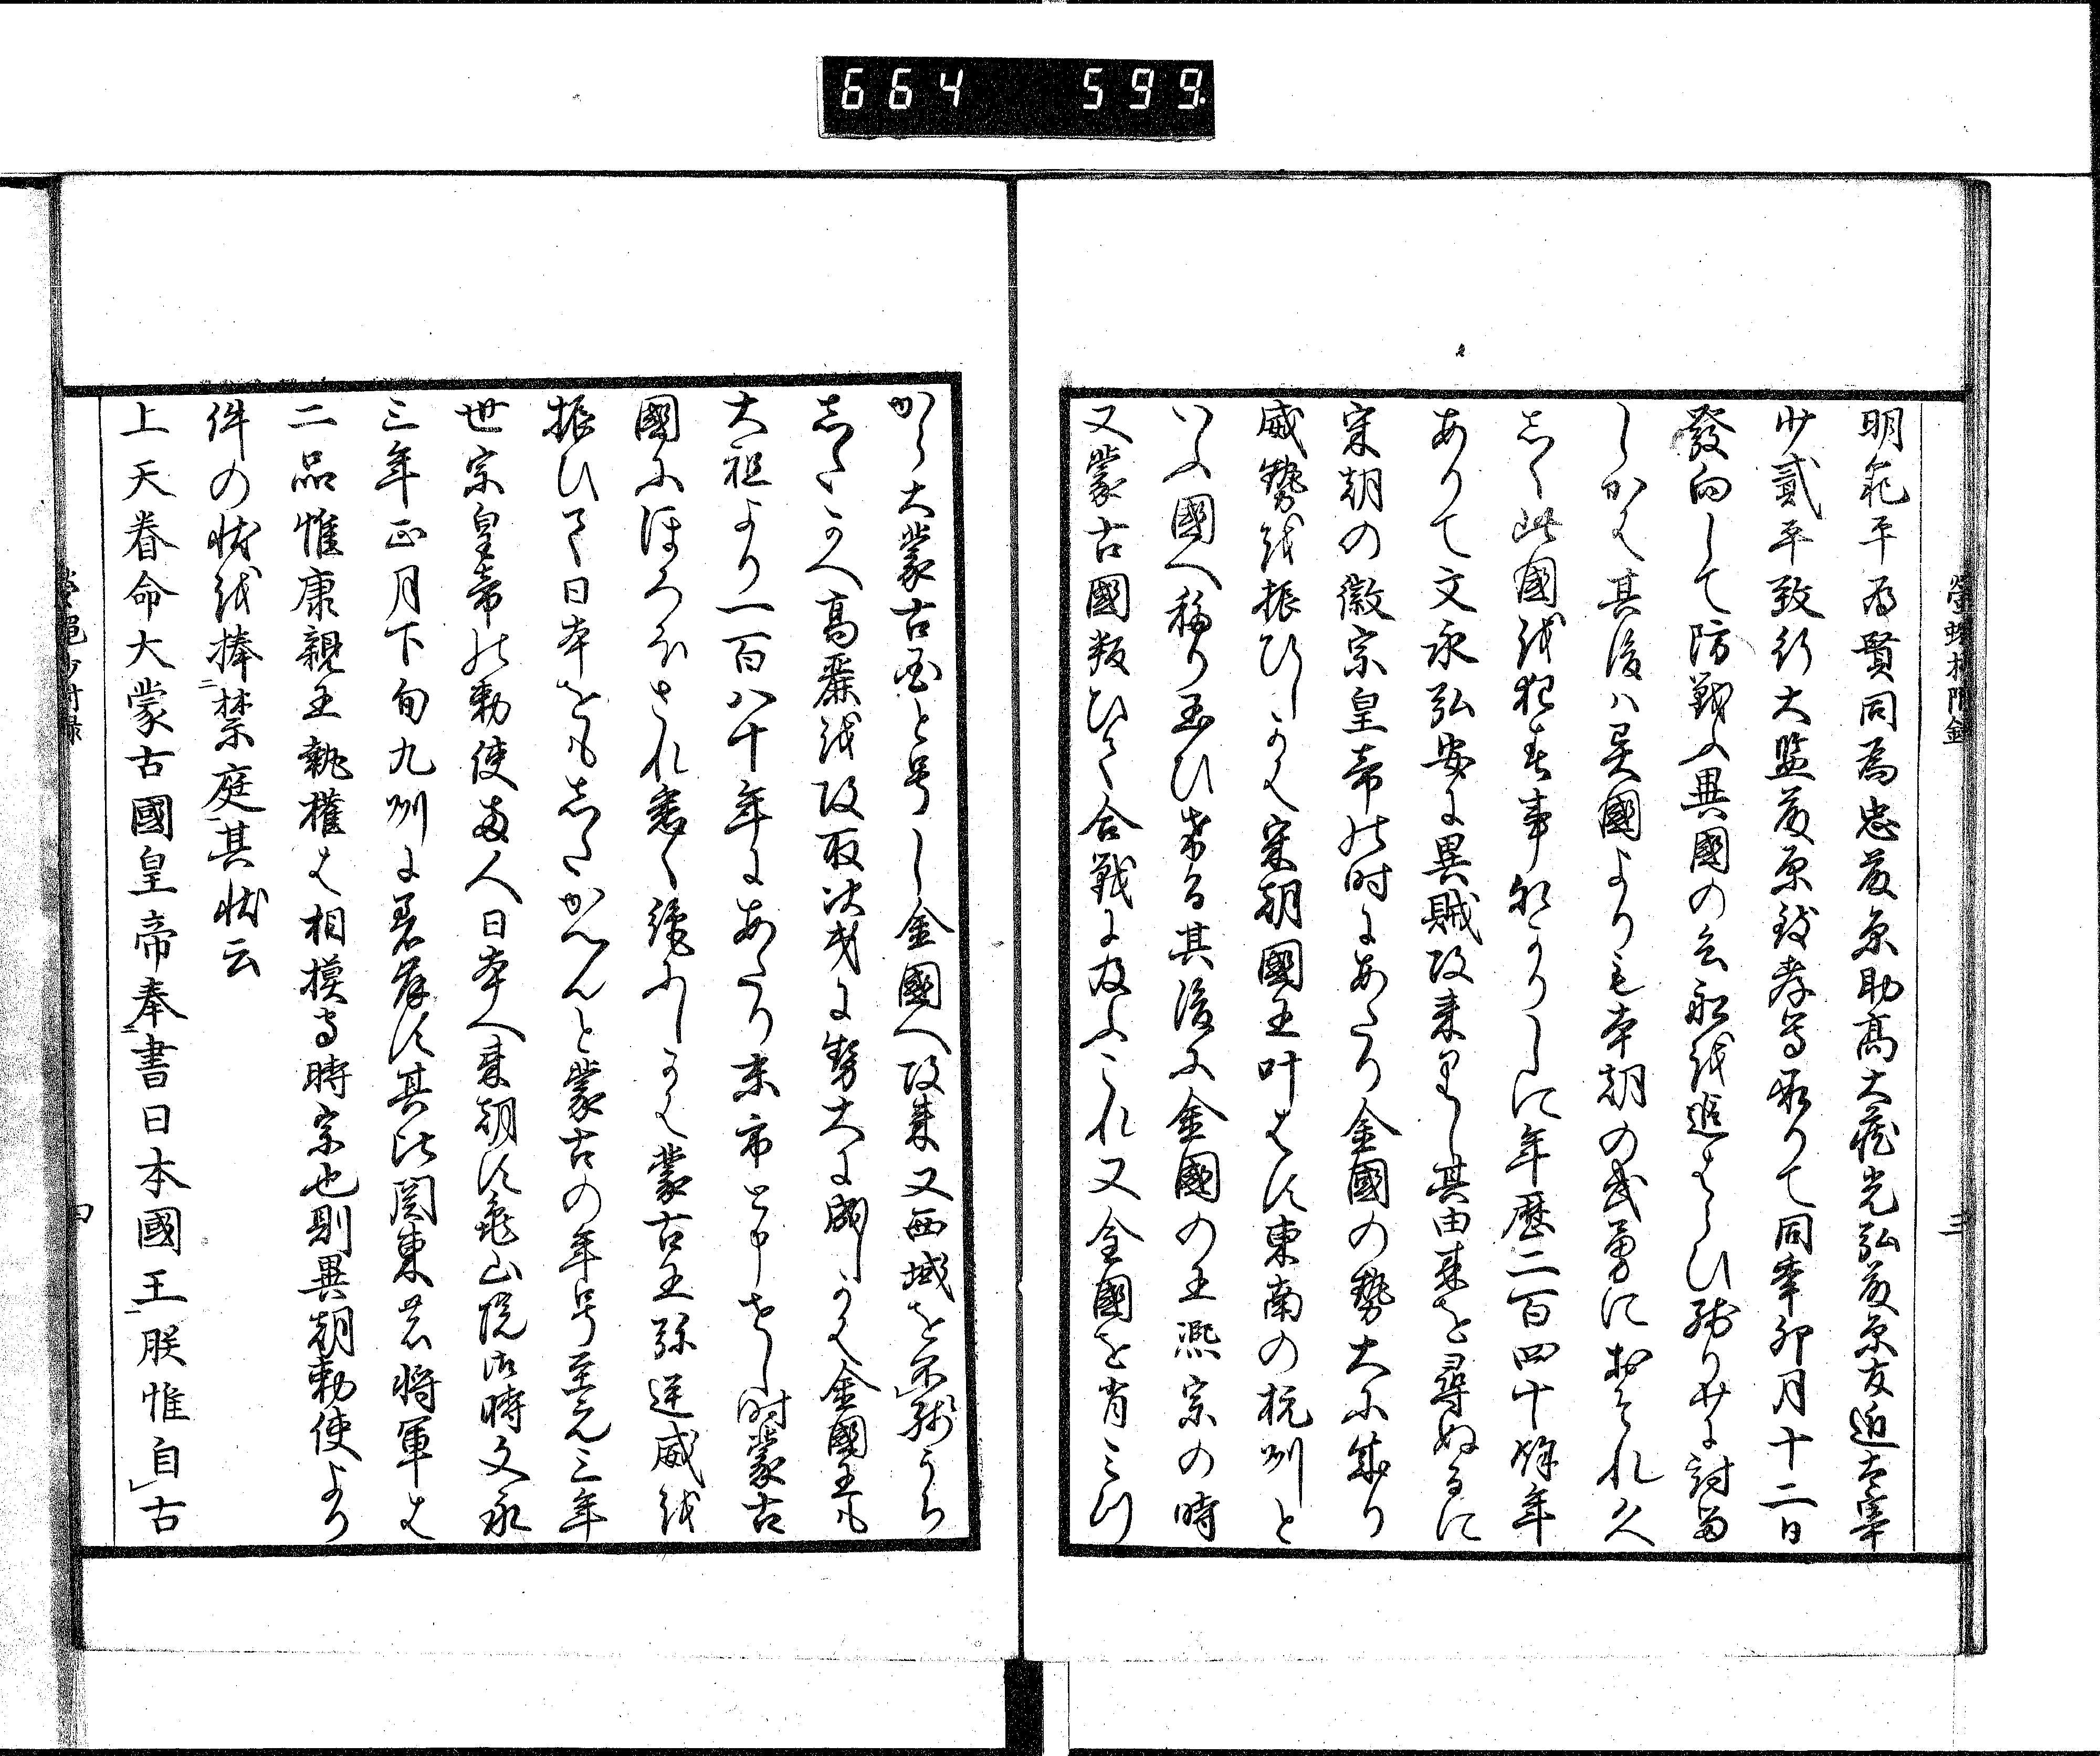 664 599.
三
明範平為賢同為忠藤原助高大蔵光弘藤原友近太宰
少貳平致行大監藤原致孝等承りて同年卯月十二日
發向して防戦ふ異國の兵船越追はらひ残りなく討留
しかは其後ハ異國よりも本朝の武勇におそれ久
しく此國越犯す事なかりしに年歴二百四十餘年
ありて文永弘安に異賊攻来りし其由来を尋ぬるに
宋朝の徽宗皇帝の時にあたり金國の勢大に成り
威勢越振ひしかは宋朝國王叶はす東南の杭州と
いふ國へ移り玉ひ其後に金國の王熙宗の時
又蒙古國叛ひて合戦に及ふこれ又金國を背きて
から大蒙古国と号し金國へ攻来又西域を
したかへ高麗越攻取次第に勢大に成しかは金國王も
大祖より一百八十年にあたり末帝と申せし時蒙古
國にほろほされ悉く従ふしかは蒙古王弥逆威越
振ひて日本をもしたかへんと蒙古の年号至元三年
世宗皇帝の勅使両人日本へ来朝す亀山院御時文永
三年正月下旬九州に着岸す其比関東者将軍は
二品惟康親王執權は相摸守時宗也則異朝勅使より
件の状越捧禁庭其状云
上天眷命大蒙古國皇帝奉書日本國王朕惟自古